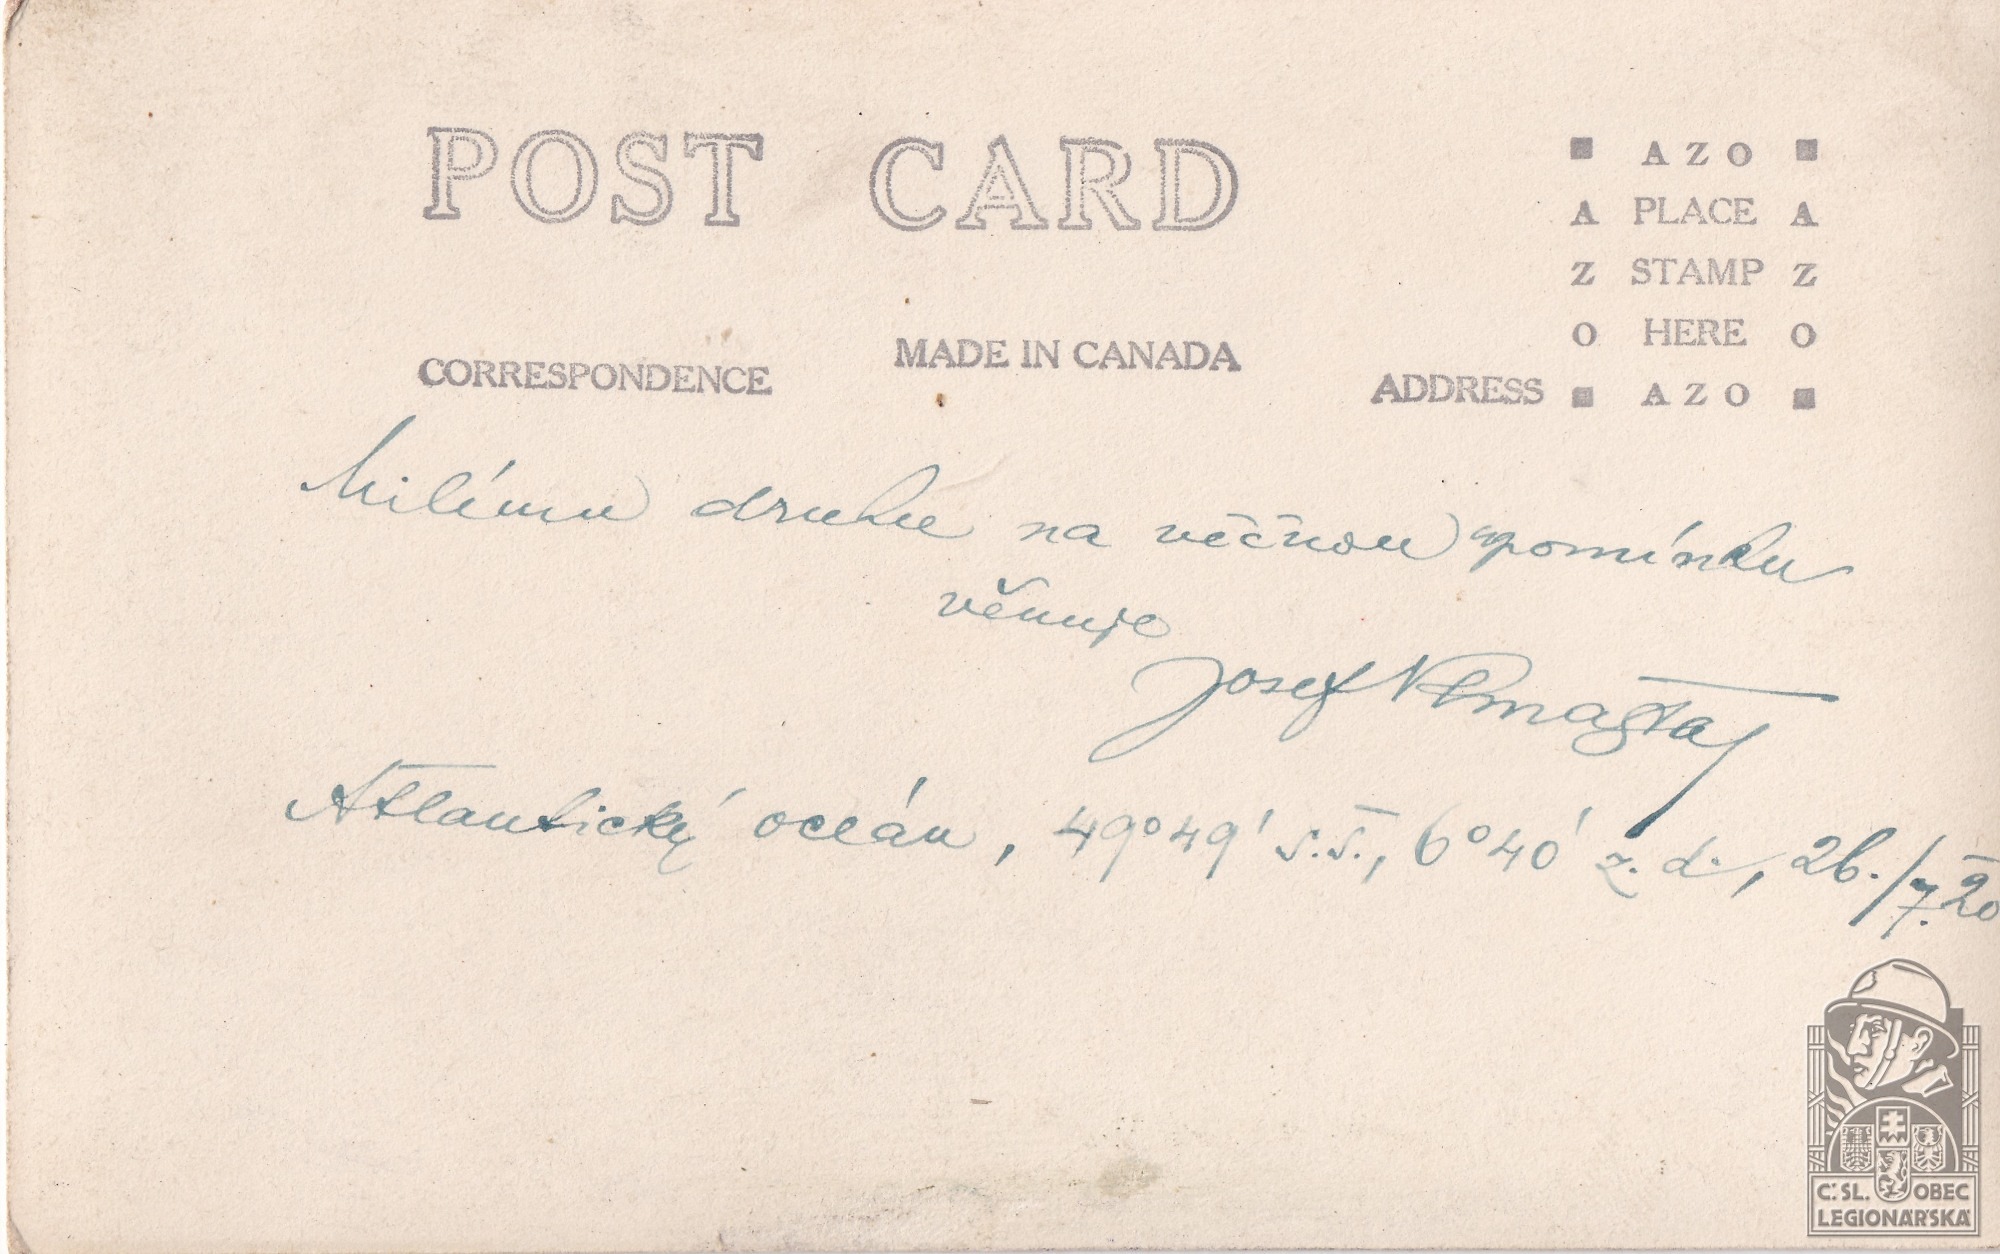 POST CARD
AZO
A PLACE A
Z STAMP Z
O HERE O
AZO
CORRESPONDENCE
MADE IN CANADA
ADDRESS
Milému druhu na věčnou upomínku
věnuje
Josef
Atlantický oceán, 49°49' s.š., 6°40' z. d., 26./7.20
Č.SL. OBEC
LEGIONÁŘSKÁ